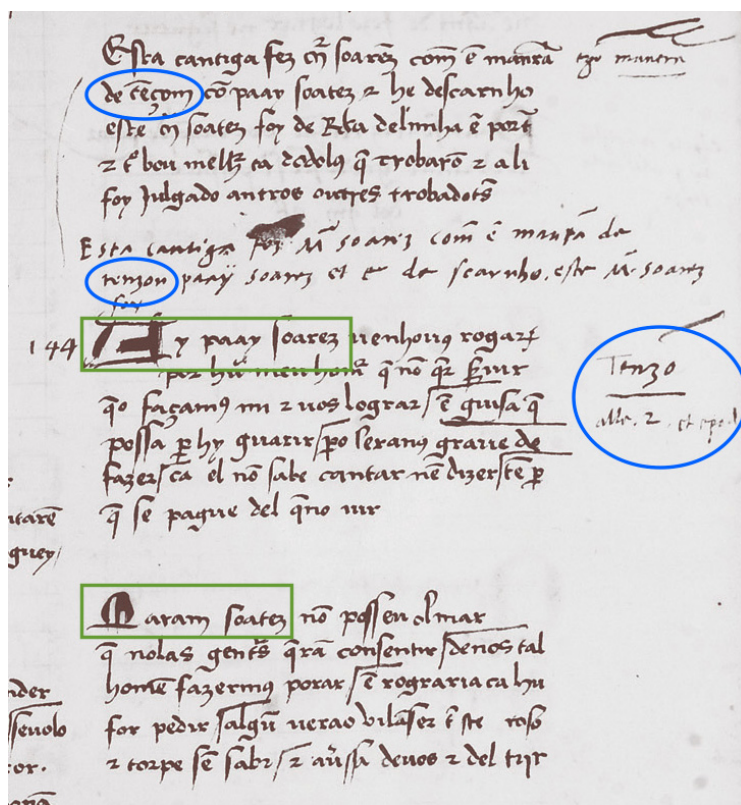 Esta cantiga fez M̃ soarez com ẽ manrã
tẽzo manera
de tẽçom cõ paay soarez z he descarnho
este M̃ soarez foy de Riba delimha ẽ porẽ
z tº bou melhr̃ ca todolꝯ q̃ trobarõ z ali
foy julgado antros outrꝯs trobadorꝯs
Esta cantiga fez M̃ soarez com ẽ manrã de
tenzon paay soarez et e de scarnho. este M̃ soarez
foy
144 Ay paay soarez uenhouꝯ rogar
por hũ meu homẽ q̃ nõ q̃r s̃uir
Tenzõ
q̃o façamꝯ mi z uos lograr / ẽ guisa q̃
alle. 2. et epod
possa ꝑ hy guarir / ꝑo seranꝯ graue de
fazer / ca el nõ sabe cantar nẽ dizer / tẽ ꝑ
q̃ se pague del q̃no uir
ntarẽ
guey /
Maram soarez nõ posseu olmar
q̃ nolas gentꝯs q̃rã consentir / deuos tal
homẽ fazermꝯ porar / ẽ rograria ca hu
nder
for pedir / salgũ uerao uilã ser ẽ ste toso
seuolo
z torpe sẽ sabr̃ / z aũssa deuos z del rijr
or.